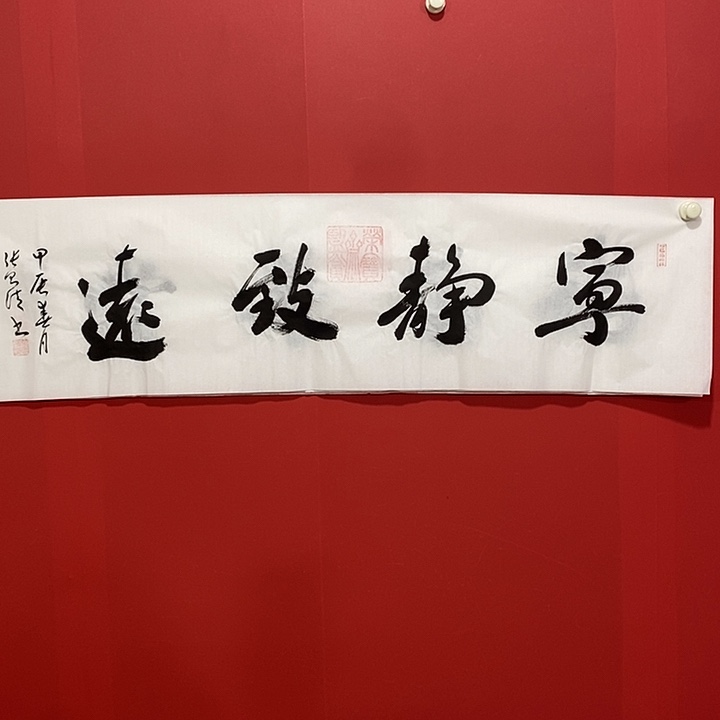 寧静致遠
甲辰春月
张
书